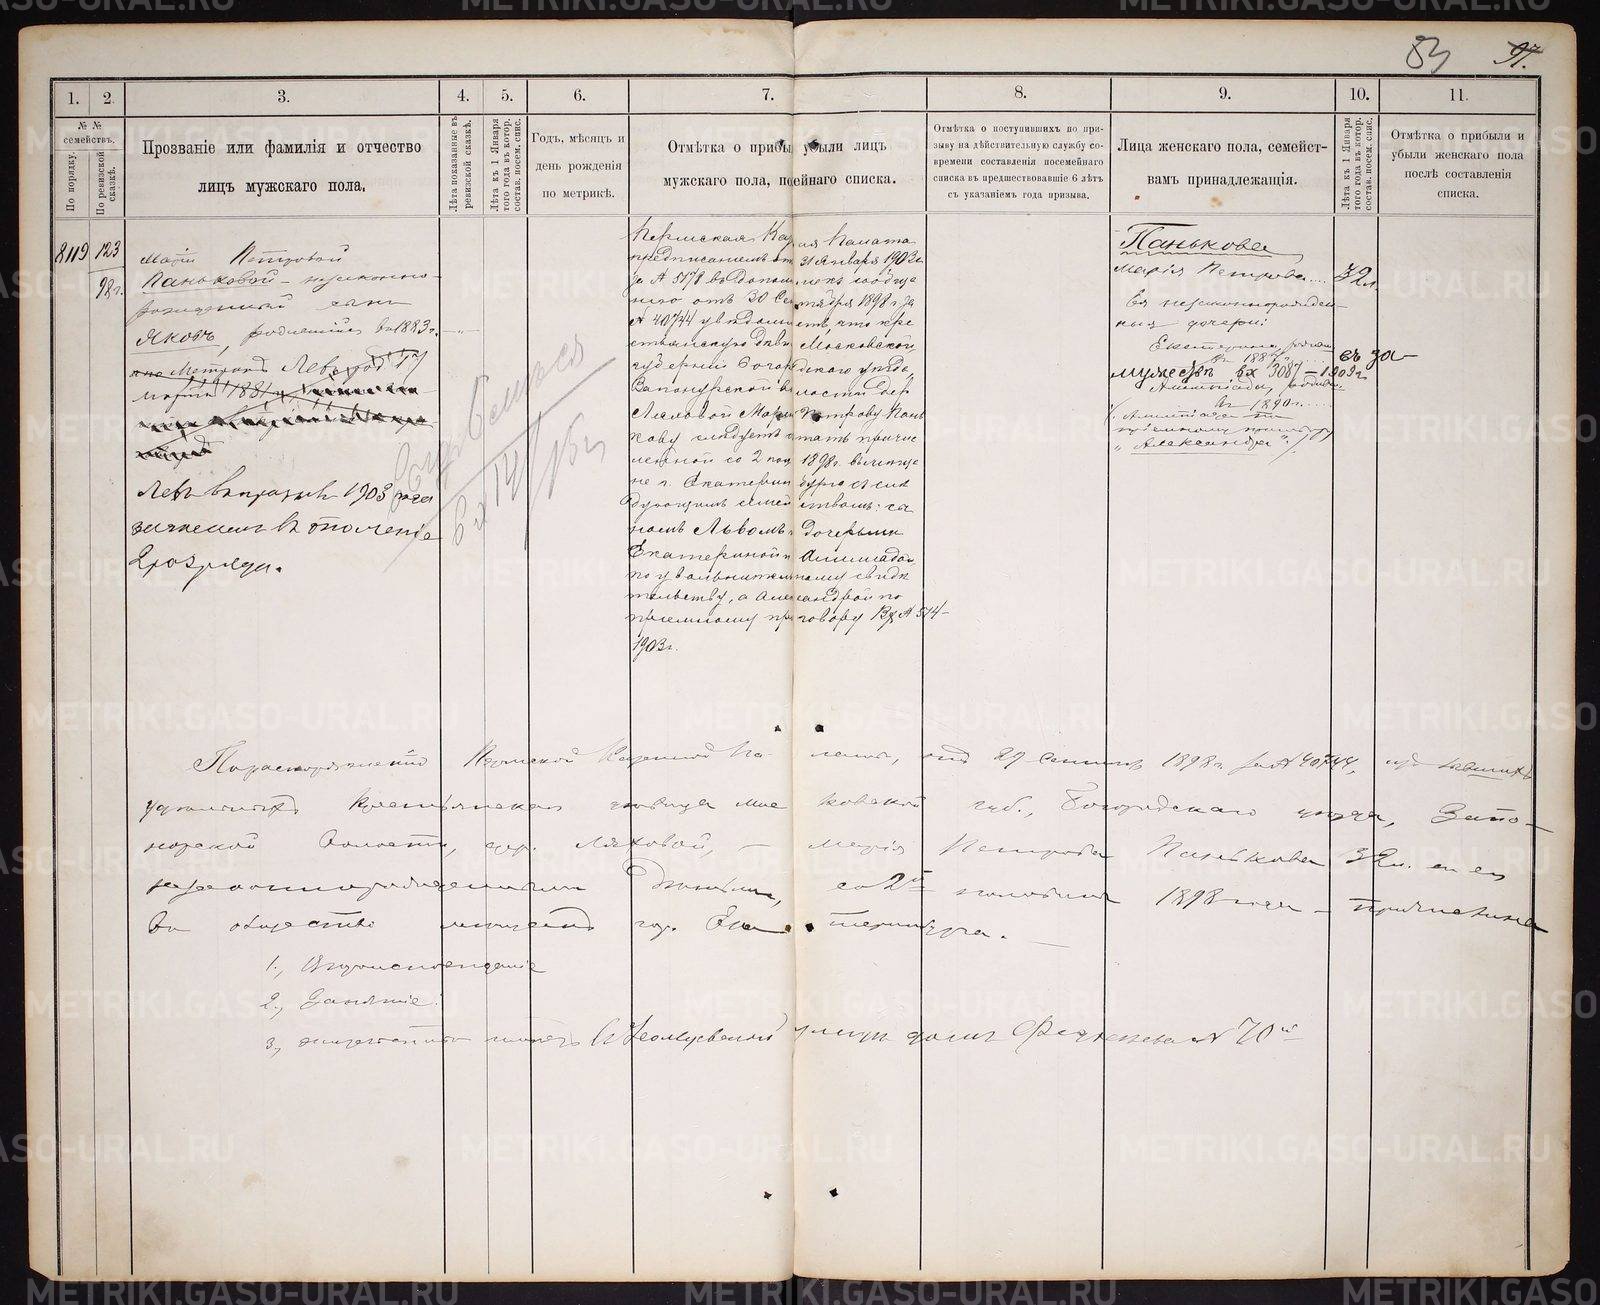 METRIKI.GASO-URAL.RU
83
97.
1. 2. 3. 4. 5. 6. 7. 8. 9. 10. 11.
№ №
семействъ.
По порядку.
По ревизской
сказкѣ.
Прозваніе или фамилія и отчество
лицъ мужскаго пола,
Лѣта показанные въ
ревизской сказкѣ.
Лѣта къ 1 Января
того года въ котор.
состав. посем. спис.
Годъ, мѣсяцъ и
день рожденія
по метрикѣ.
Отмѣтка о прибы убыли лицъ
мужскаго пола, по ейнаго списка.
Отмѣтка о поступившихъ по при-
зыву на дѣйствительную службу со-
времени составленія посемейнаго
списка въ предшествовавшіе 6 лѣтъ
съ указаніемъ года призыва.
Лица женскаго пола, семейст-
вамъ принадлежащія.
Лѣта къ 1 Января
того года въ котор.
состав. посем. спис.
Отмѣтка о прибыли и
убыли женскаго пола
послѣ составленія
списка.
8119 123
98 г.
Маріи Петровой
Паньковой - незаконно-
рожденный сынъ
Яковъ, родившійся въ 1883 г.
по Метрикѣ Левъ род. 17
марта 1881 г.
Левъ въ призывѣ 1903 года
зачисленъ въ ополченіе
2 разряда.
Пермская Каз ая Палата
предписаніемъ отъ 31 Января 1903 г.
за № 5178 въ дополненіе сообще
нія отъ 30 Сентября 1898 г. за
№ 40744 увѣдомляетъ, что кре
стьянскую дѣвицу Московской
губерніи Богородскаго уѣзда,
Запонорской волости дер.
Ляховой Марію Петрову Пань
кову слѣдуетъ считать причис
ленной со 2 пол. 1898 г. въ мѣща
не г. Екатеринбурга съ слѣ
дующимъ семействомъ: сы
номъ Львомъ и дочерьми
Екатериной и Алимпіадой
по увольнительному свидѣ
тельству, а Александрой по
пріемному приговору Вх № 514-
1903 г.
Панькова
Марія Петрова.... 32 л.
Ея незаконнорожден-
ныя дочери:
Екатерина, родив.
въ 1887 г.
въ за-
мужествѣ вх 3087 - 1909 г.
Алимпіада, родив.
въ 1890 г.....
Алимпіада по
пріемному приговору
„Александра".
По распоряженію Пермской Казенной Па- латы, отъ 29 сентяб. 1898 г. за № 40744, изъ
крестьянская дѣвица Мос ковской губ., Богородскаго уѣзда, Запо-
норской Волости, дер. Ляховой, - Марія Петрова Панькова 32 л. съ ея
незаконнорожденными дѣтьми, со 2й половины 1898 года - причислена
въ общество мѣщанъ гор. Ека теринбурга. -
1., Вѣроисповѣданіе
2., Занятіе:
3., улицѣ домъ № 70й